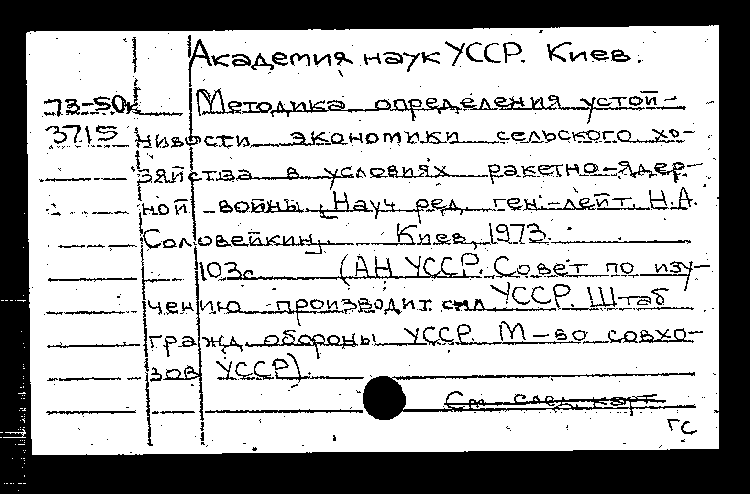 Академия наук УССР. Киев.
73-50к Методика определения устой-
3715 чивости экономики сельского хо-
зяйства в условиях ракетно-ядер-
ной войны. [Науч. ред. ген.-лейт. Н.А.
Соловейкин]. Киев, 1973.
103с. (АН УССР. Совет по изу-
чению производит. сил УССР. Штаб
гражд. обороны УССР. М-во совхо-
зов УССР).
См. след. карт.
ГС